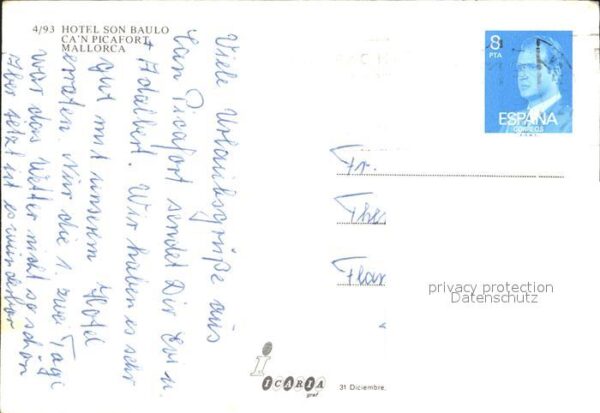 4/93 HOTEL SON BAULO
CA'N PICAFORT
MALLORCA
Viele Urlaubsgrüße aus
Can Picafort sendet Dir Evi u.
+ Adalbert. Wir haben es sehr
gut mit unserem Hotel
erraten. Nur die 1. zwei Tage
war das Wetter nicht so schön
Aber jetzt ist es wunderbar
8
PTA
ESPAÑA
CORREOS
Fr.
The
Flor
privacy protection
Datenschutz
ICARIA
graf
31 Diciembre,